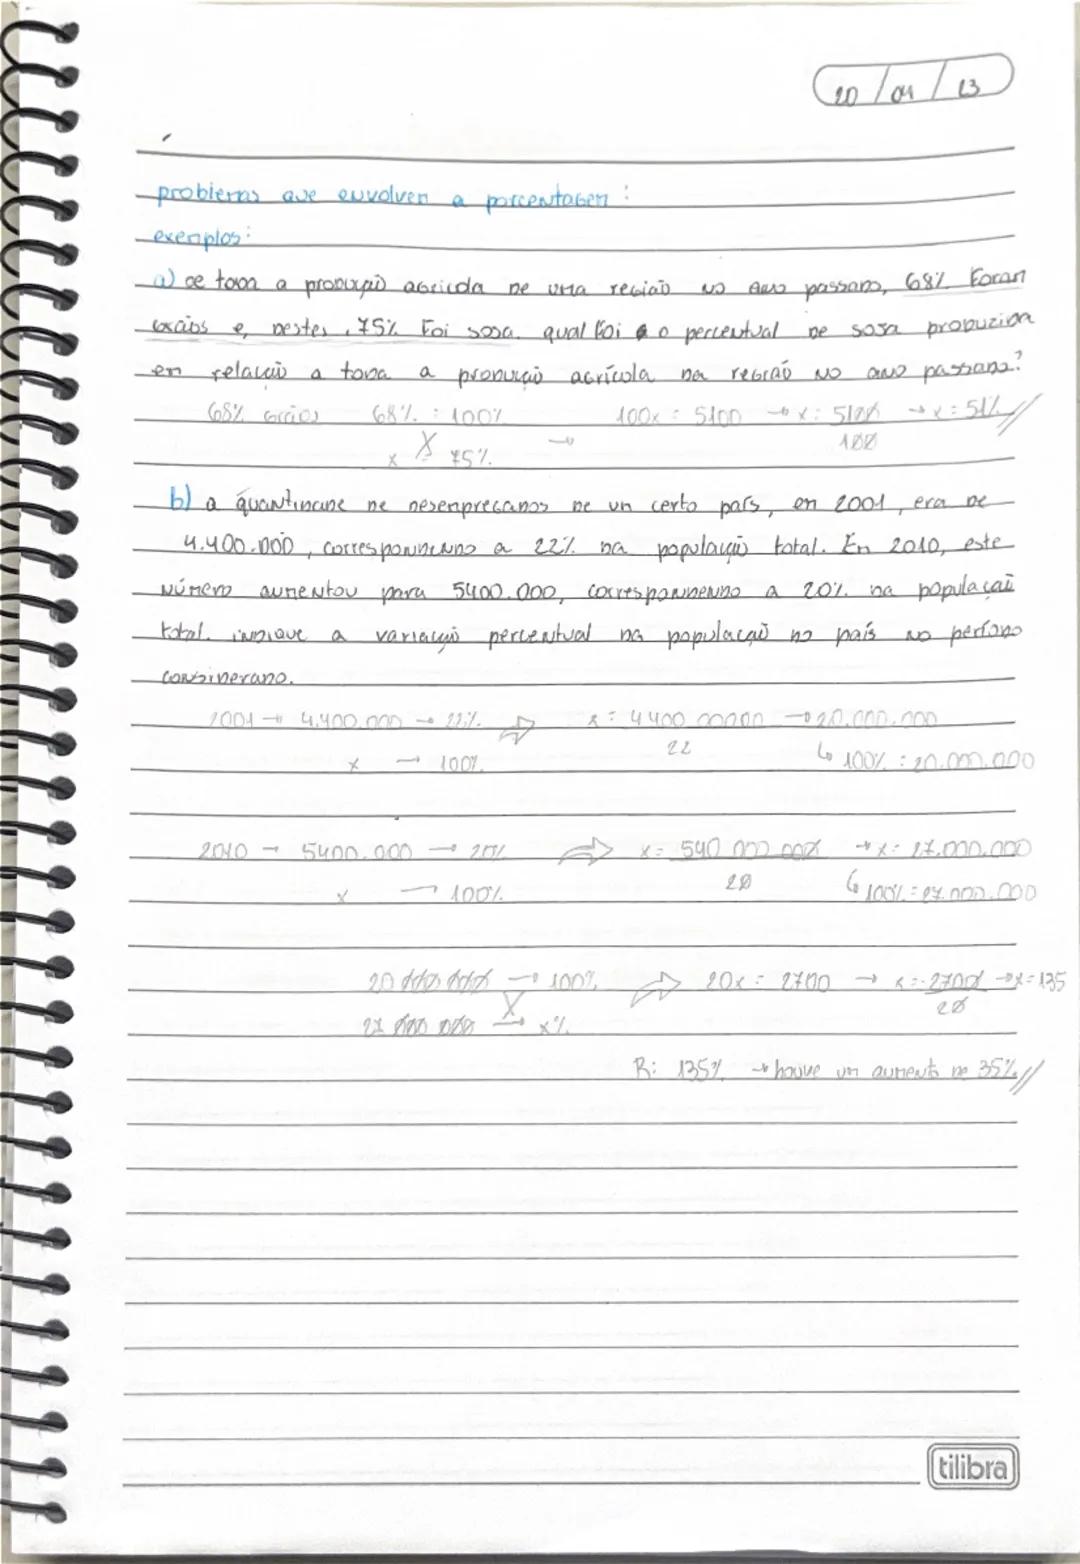 20/04/23
problemas que envolvem a porcentagem:
exemplos:
a) de toda a produção agrícola de uma região no ano passado, 68% foram
grãos e, destes, 75% foi soja. qual foi o percentual de soja produzida
em relação a toda a produção agrícola da região no ano passado?
68% grãos 68% : 100% 100x = 5100 → x = 5100 → x = 51%
x = 75% → 100
b) a quantidade de desempregados de um certo país, em 2001, era de
4.400.000, correspondendo a 22% da população total. Em 2010, este
número aumentou para 5400.000, correspondendo a 20% da população
total. indique a variação percentual da população no país no período
considerado.
2001 → 4.400.000 → 22% ⇒ x = 4400 00000 → 20.000.000
x → 100% 22 ↳ 100% = 20.000.000
2010 → 5400.000 → 20% ⇒ x = 540 000 000 → x = 27.000.000
x → 100% 20 ↳ 100% = 27.000.000
20 000 000 → 100% ⇒ 20x = 2700 → x = 2700 → x = 135
27 000 000 → x% 20
R: 135% → houve um aumento de 35%//
tilibra